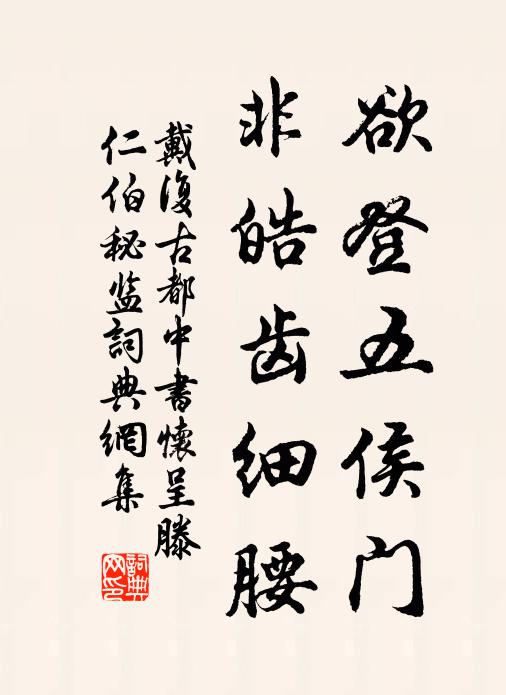 欲登五侯门
非皓齿细腰
戴復古都中書懷呈滕
仁伯秘监詞典網集
詞典
网印